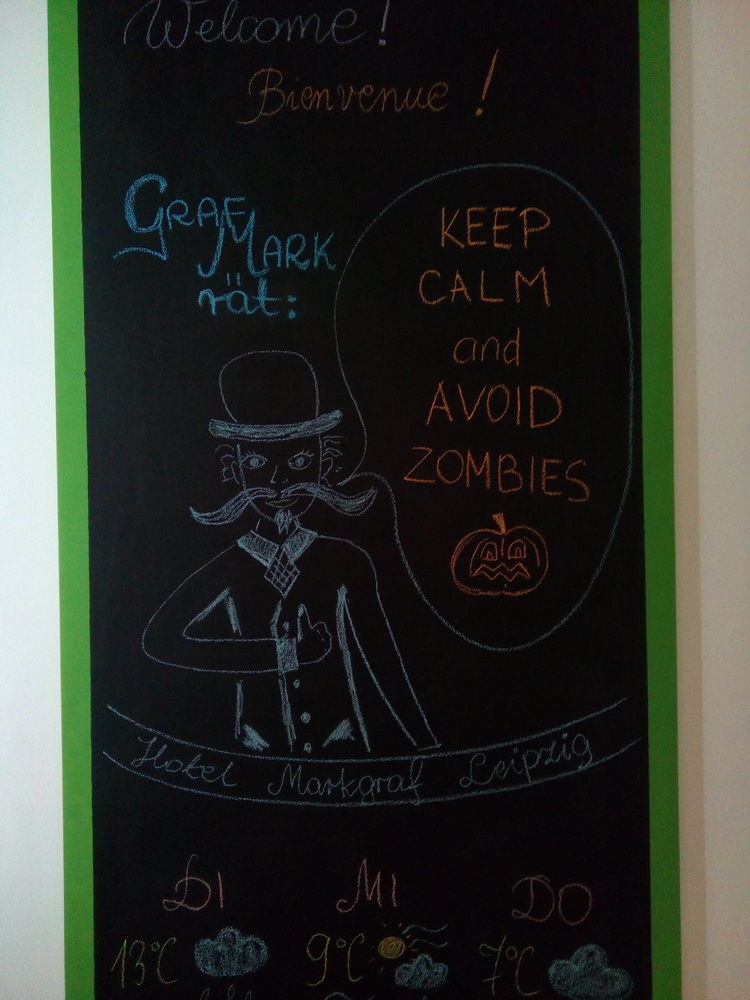 Welcome!
Bienvenue!
GRAF
MARK
rät:
KEEP
CALM
and
AVOID
ZOMBIES
Hotel Markgraf Leipzig
DI MI DO
13°C 9°C 7°C